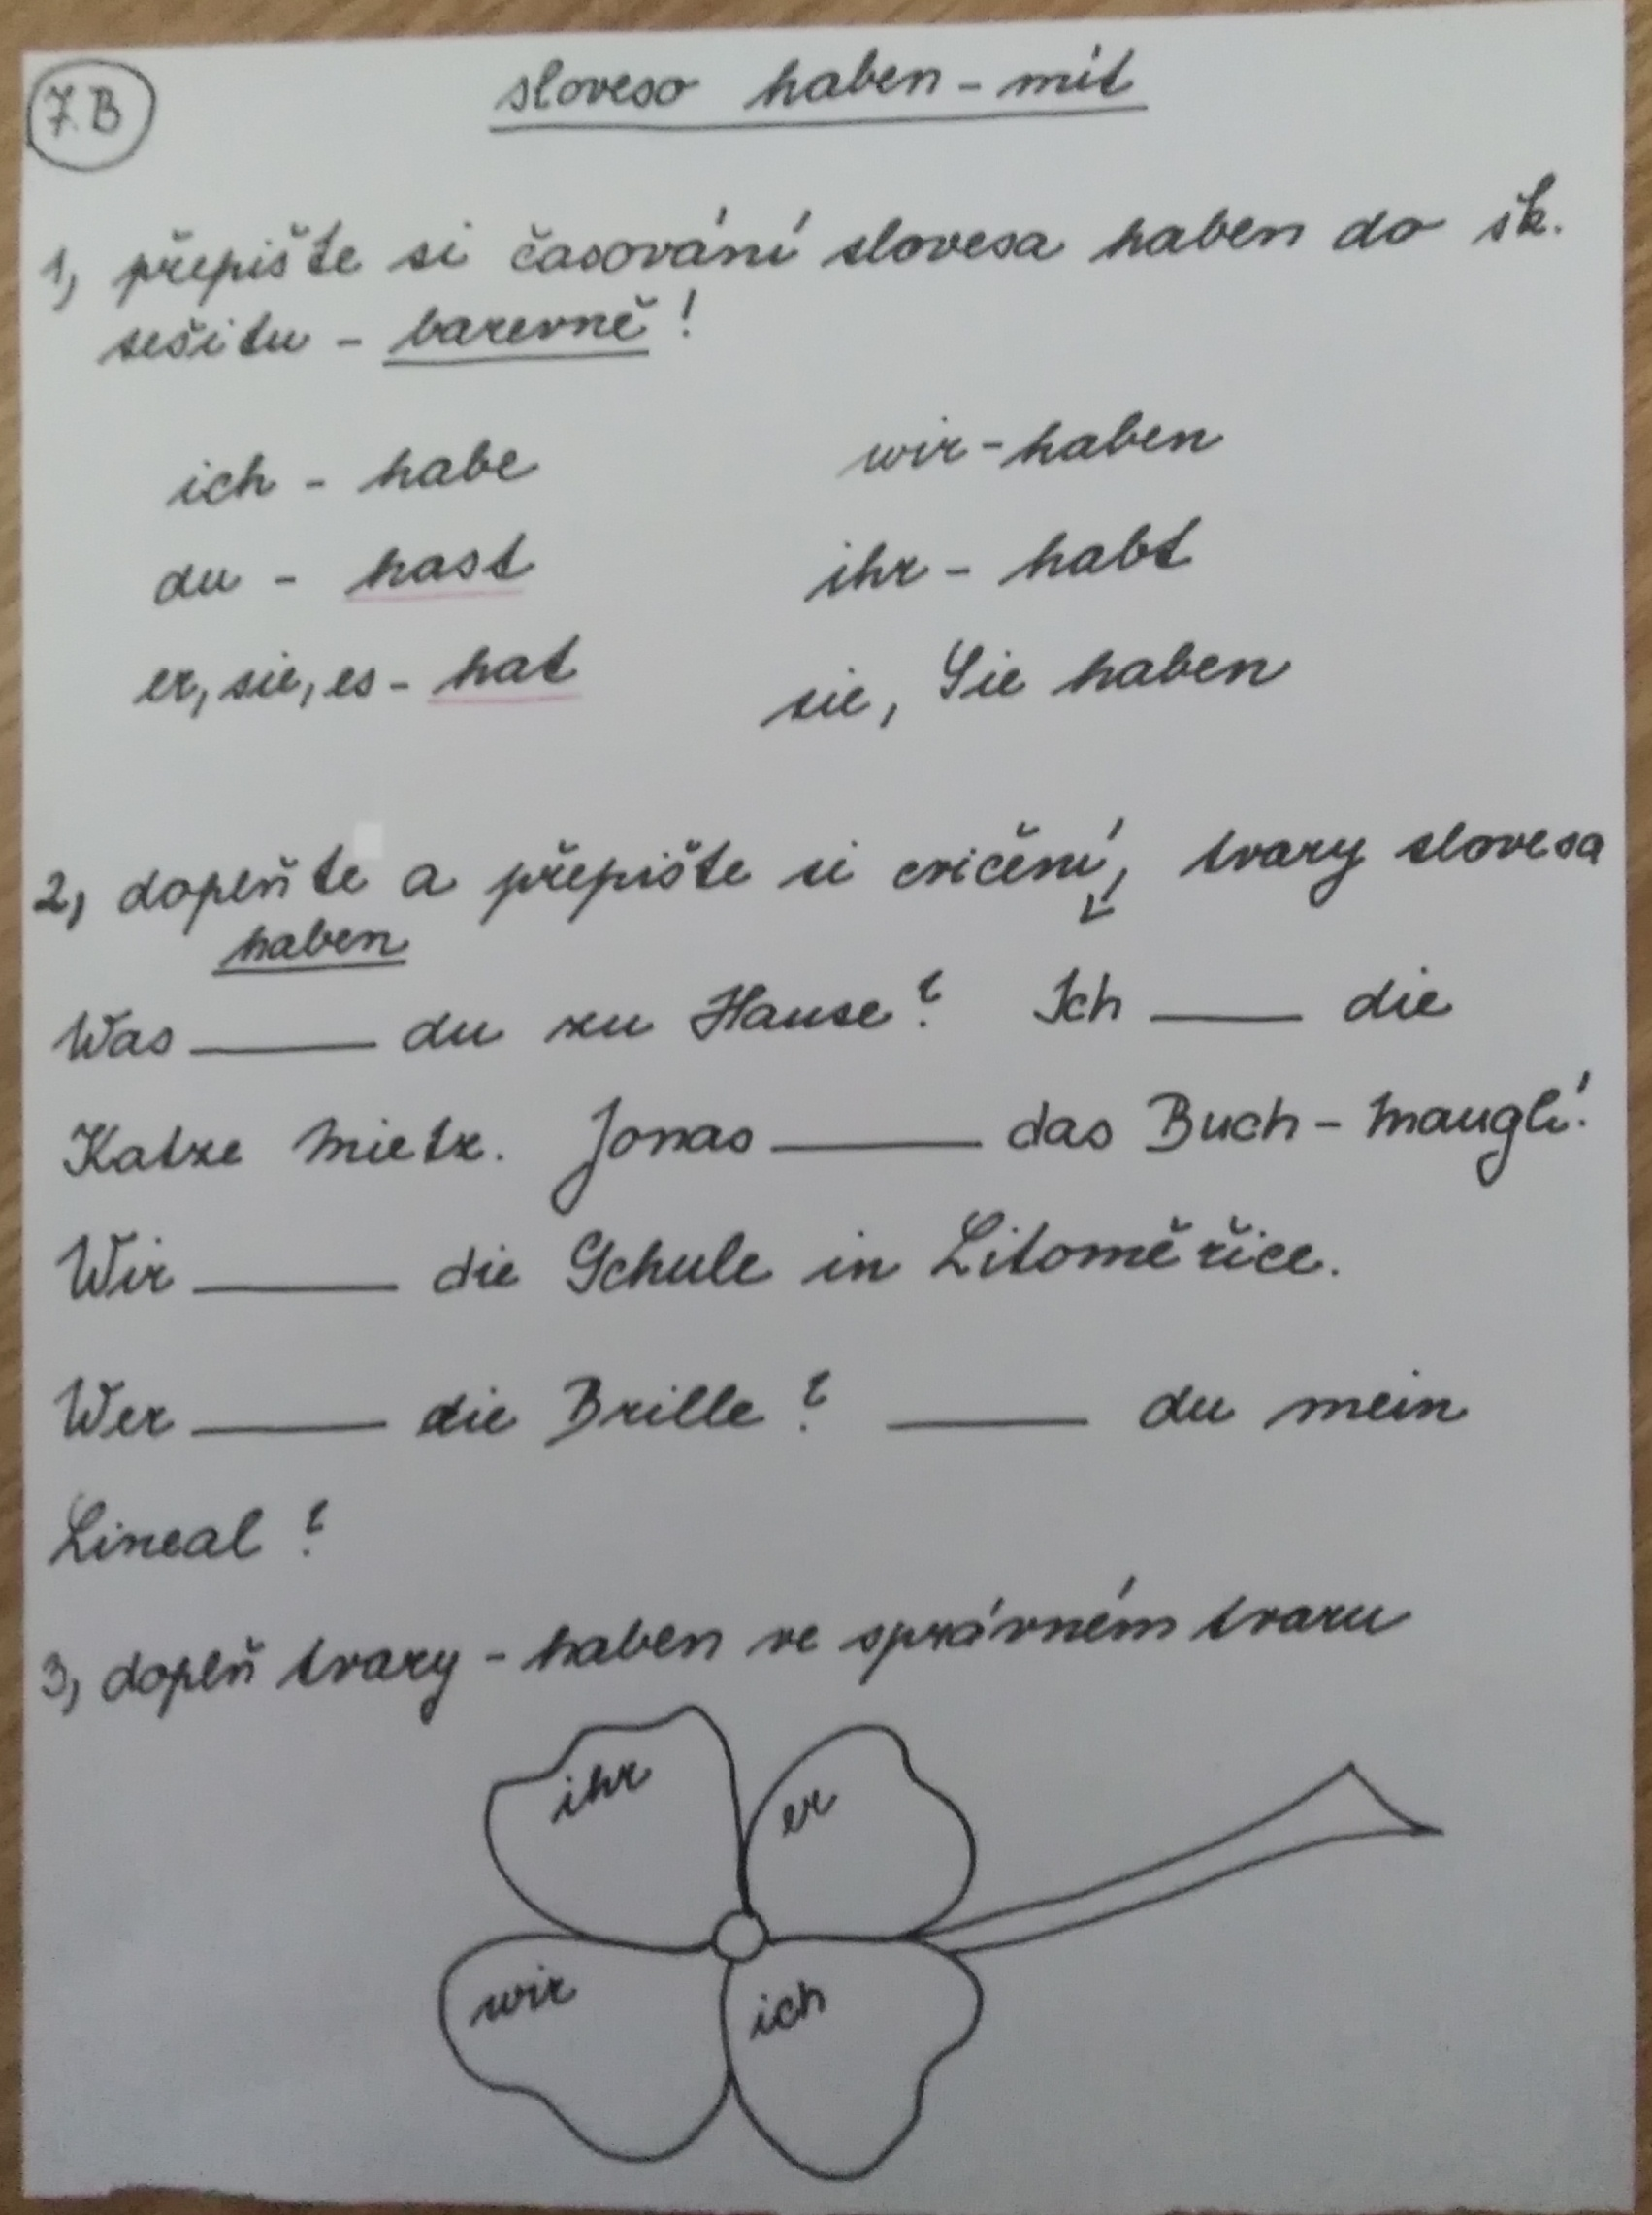 7.B
sloveso haben - mít
1, přepište si časování slovesa haben do šk.
sešitu - barevně!
ich - habe
wir - haben
du - hast
ihr - habt
er, sie, es - hat
sie, Sie haben
2, doplňte a přepište si cvičení, tvary slovesa
haben
Was ____ du zu Hause? Ich ____ die
Katze Mietz. Jonas ____ das Buch - Mauglí.
Wir ____ die Schule in Litoměřice.
Wer ____ die Brille? ____ du mein
Lineal?
3, doplň tvary - haben ve správném tvaru
ihr
er
wir
ich